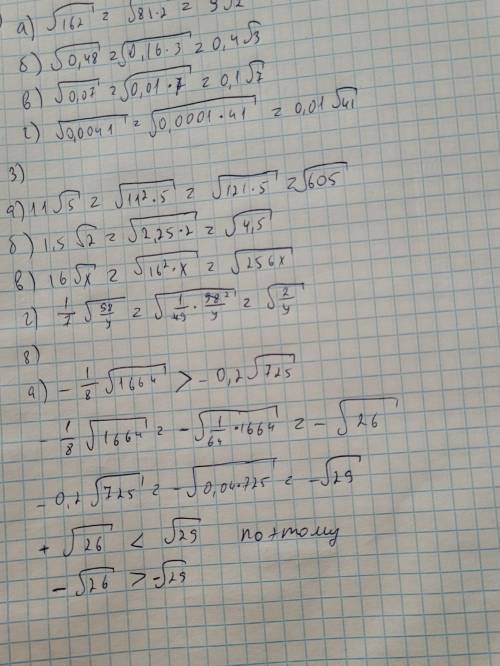 а) √162 = √81·2 = 9√2
б) √0,48 = √0,16·3 = 0,4√3
в) √0,07 = √0,01·7 = 0,1√7
г) √0,0041 = √0,0001·41 = 0,01√41
3)
а) 11√5 = √11²·5 = √121·5 = √605
б) 1,5√2 = √2,25·2 = √4,5
в) 16√x = √16²·x = √256x
г) 1/7 √98/y = √1/49·98²/y = √2/y
8)
а) -1/8 √1664 > -0,2√725
-1/8 √1664 = -√1/64·1664 = -√26
-0,2√725 = -√0,04·725 = -√29
+ √26 < √29 поэтому
-√26 > -√29